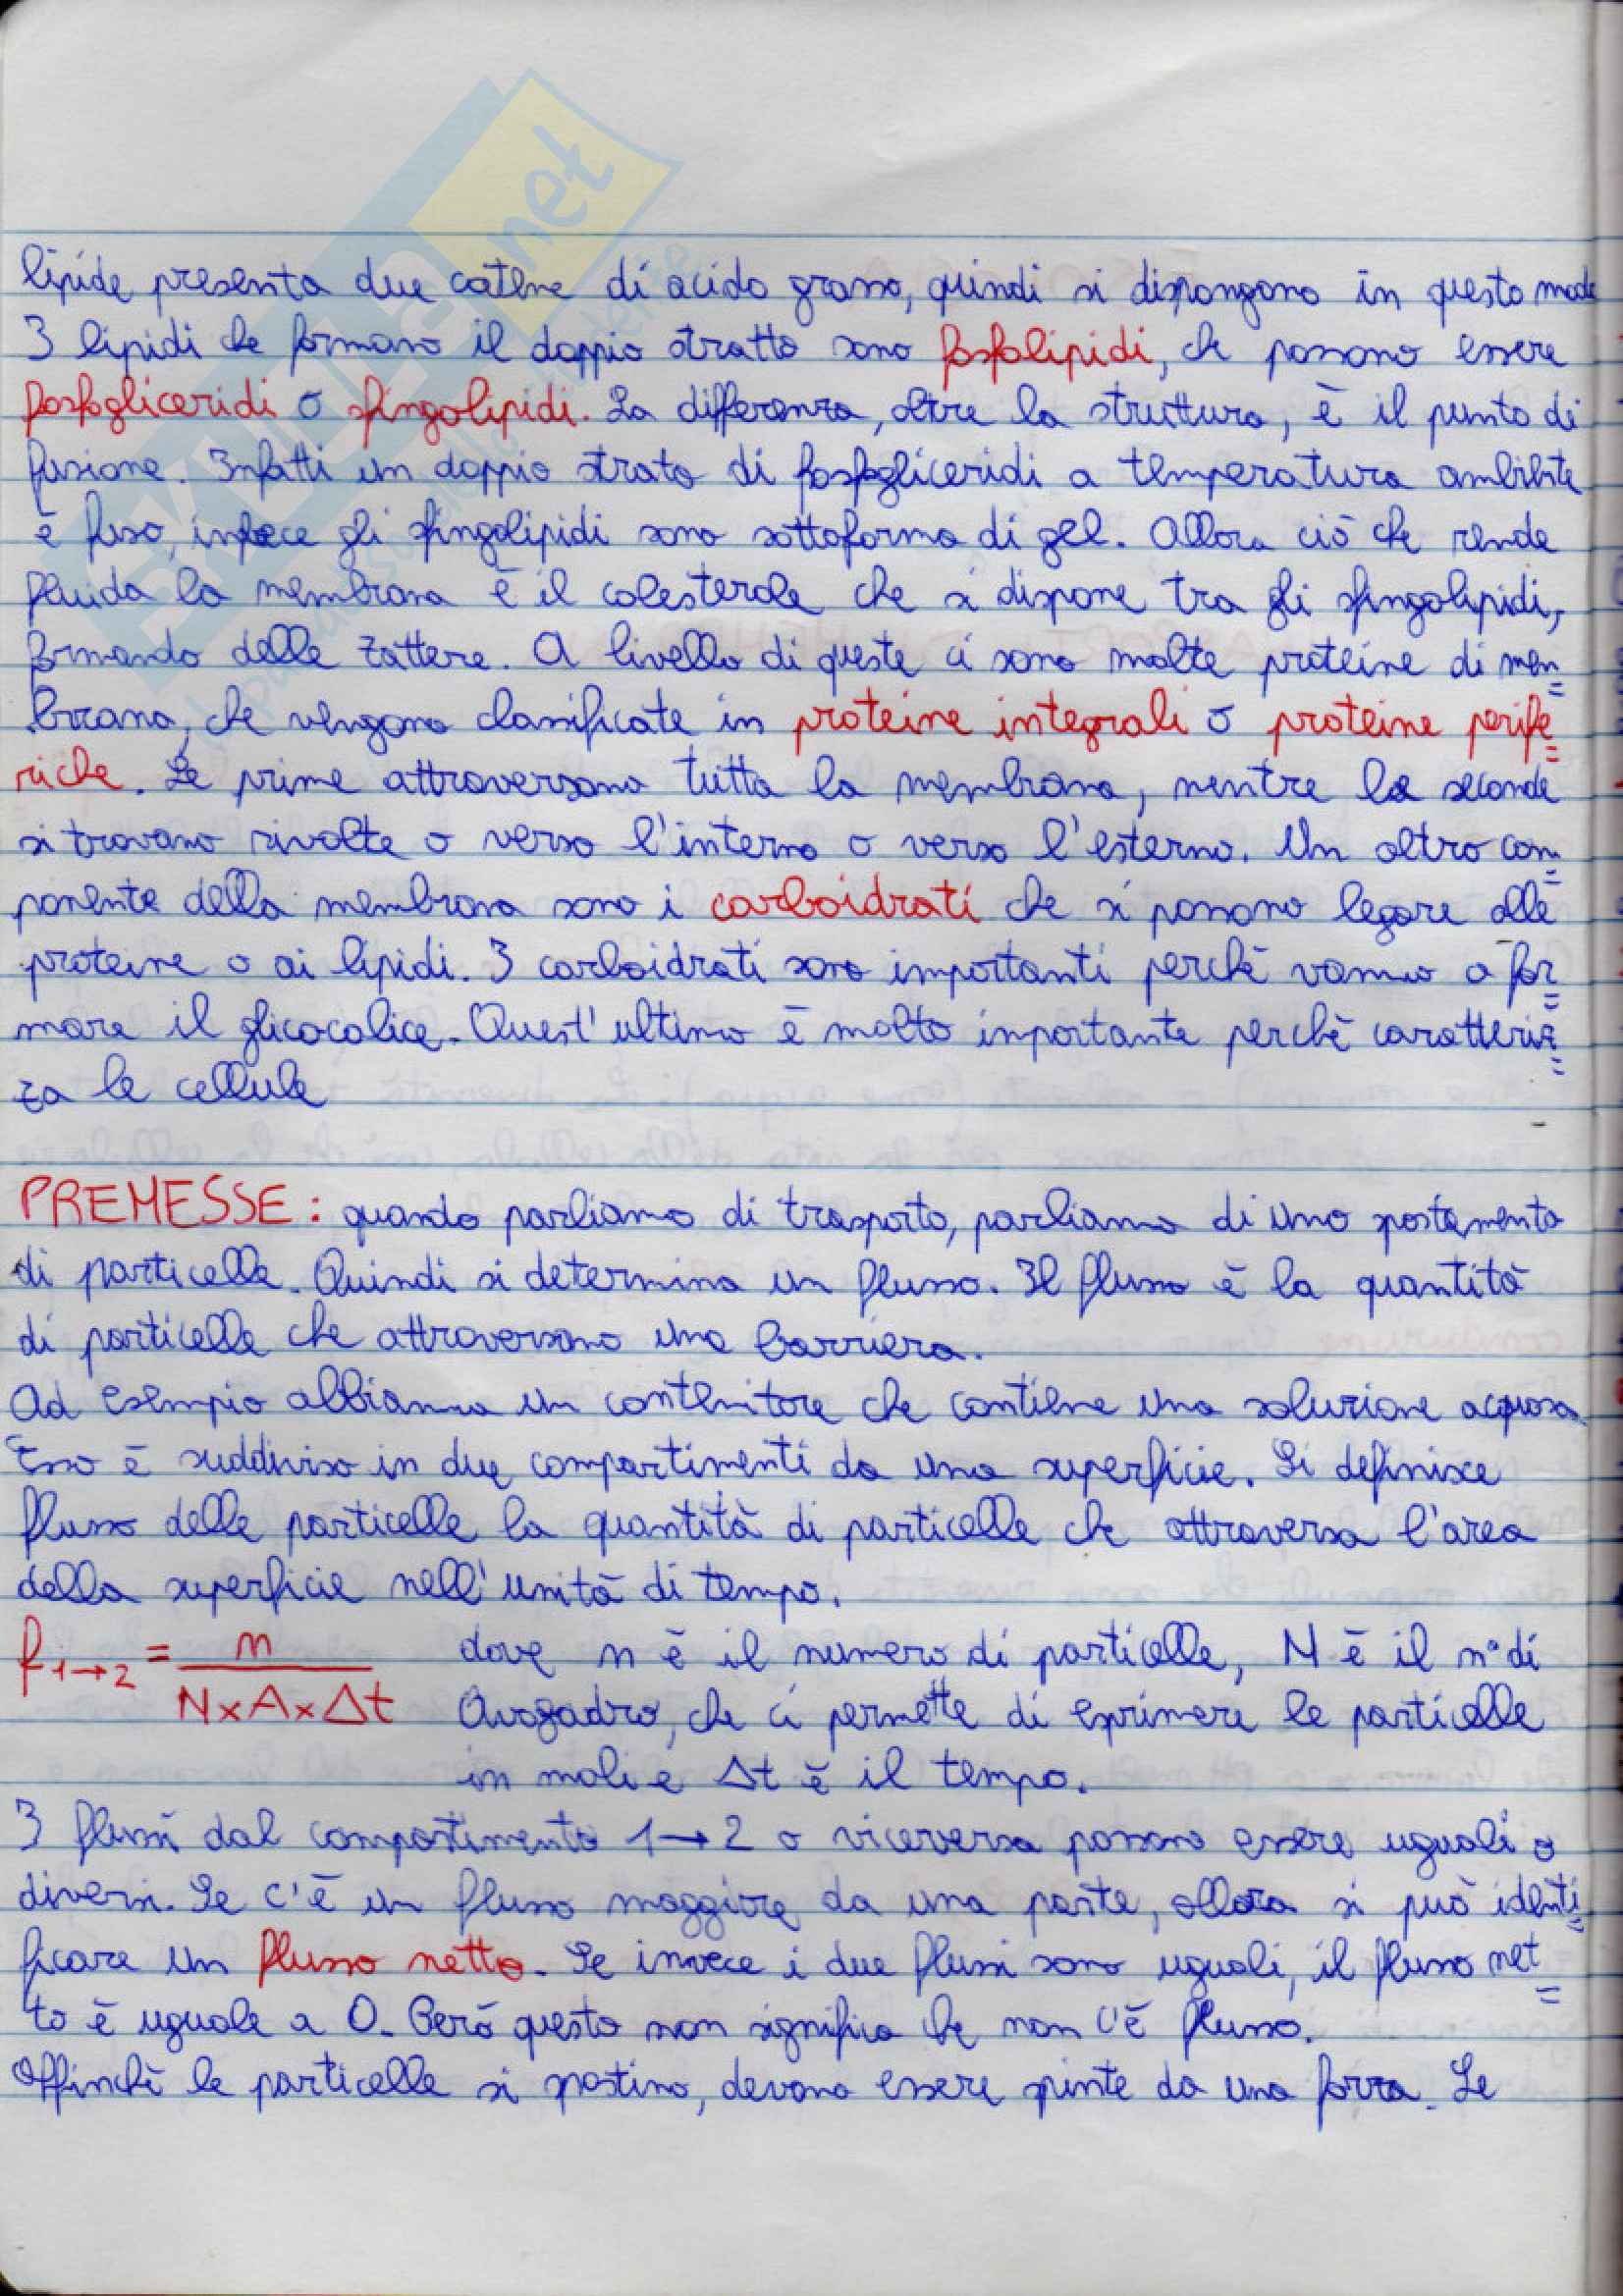 lipide presenta due catene di acido grasso, quindi si dispongono in questo modo
I lipidi che formano il doppio stratto sono fosfolipidi, che possono essere
fosfogliceridi o sfingolipidi. La differenza, oltre la struttura, è il punto di
fusione. Infatti un doppio strato di fosfogliceridi a temperatura ambiente
è fuso, invece gli sfingolipidi sono sottoforma di gel. Allora ciò che rende
fluida la membrana è il colesterole che si dispone tra gli sfingolipidi,
formando delle zattere. A livello di queste ci sono molte proteine di mem=
brana, che vengono classificate in proteine integrali o proteine perife=
riche. Le prime attraversano tutta la membrana, mentre le seconde
si trovano rivolte o verso l'interno o verso l'esterno. Un altro com=
ponente della membrana sono i carboidrati che si possono legare alle
proteine o ai lipidi. I carboidrati sono importanti perchè vanno a for=
mare il glicocalice. Quest'ultimo è molto importante perchè caratteriz=
za le cellule
PREMESSE: quando parliamo di trasporto, parliamo di uno spostamento
di particelle. Quindi si determina un flusso. Il flusso è la quantità
di particelle che attraversano una barriera.
Ad esempio abbiamo un contenitore che contiene una soluzione acquosa.
Esso è suddiviso in due compartimenti da una superficie. Si definisce
flusso delle particelle la quantità di particelle che attraversa l'area
della superficie nell'unità di tempo.
f1→2 = n / N×A×Δt dove n è il numero di particelle, N è il n° di
Avogadro, che ci permette di esprimere le particelle
in moli e Δt è il tempo.
I flussi dal compartimento 1→2 o viceversa possono essere uguali o
diversi. Se c'è un flusso maggiore da una parte, allora si può identi=
ficare un flusso netto. Se invece i due flussi sono uguali, il flusso net=
to è uguale a 0. Però questo non significa che non c'è flusso.
Affinchè le particelle si spostino, devono essere spinte da una forza. Le